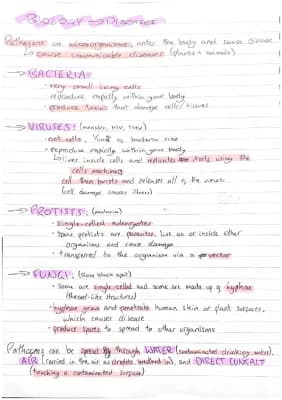 BIOLOGY → DISEASES
Pathogens are microorganisms, enter the body and cause disease
↳ cause communicable diseases (plants + animals)
→ BACTERIA:
• very small living cells
• reproduce rapidly within your body
• produce toxins that damage cells/tissues
→ VIRUSES: (measles, HIV, TMV)
• not cells, of bacteria size
• reproduce rapidly within your body
↳ live inside cells and replicate itself using the
cells machinery
cell then bursts and releases all of the viruses
(cell damage causes illness)
→ PROTISTS: (malaria)
• single-celled eukaryotes
• Some protists are parasites, live on or inside other
organisms and cause damage
• transferred to the organism via a vector
→ FUNGI: (Rose black spot)
• Some are single-celled and some are made up of hyphae
(thread-like structures)
• hyphae grow and penetrate human skin or plant surfaces,
which causes disease
• produce spores to spread to other organisms
Pathogens can be spread by through WATER (contaminated drinking water),
AIR (carried in the air as droplets breathed in), and DIRECT CONTACT
(touching a contaminated surface)